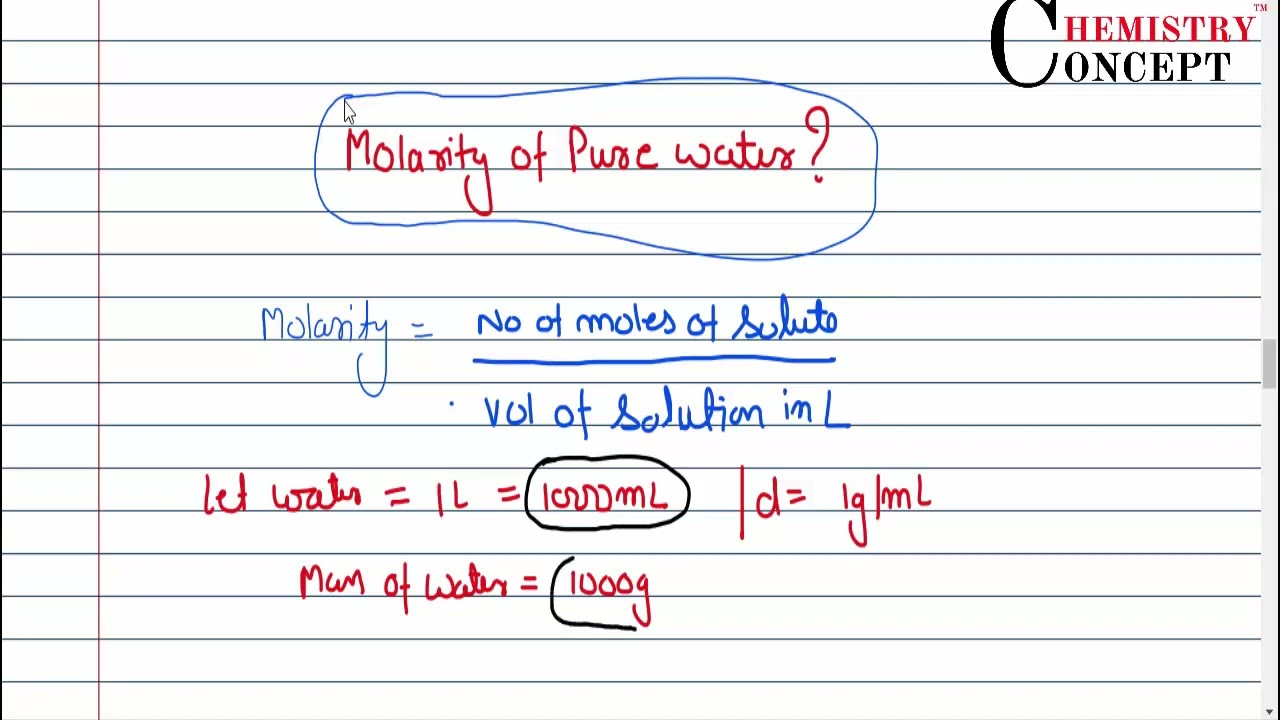 CHEMISTRY™
CONCEPT
Molarity of Pure water?
Molarity = No of moles of solute
vol of solution in L
Let water = 1L = 1000mL | d= 1g/mL
Mass of water = 1000g